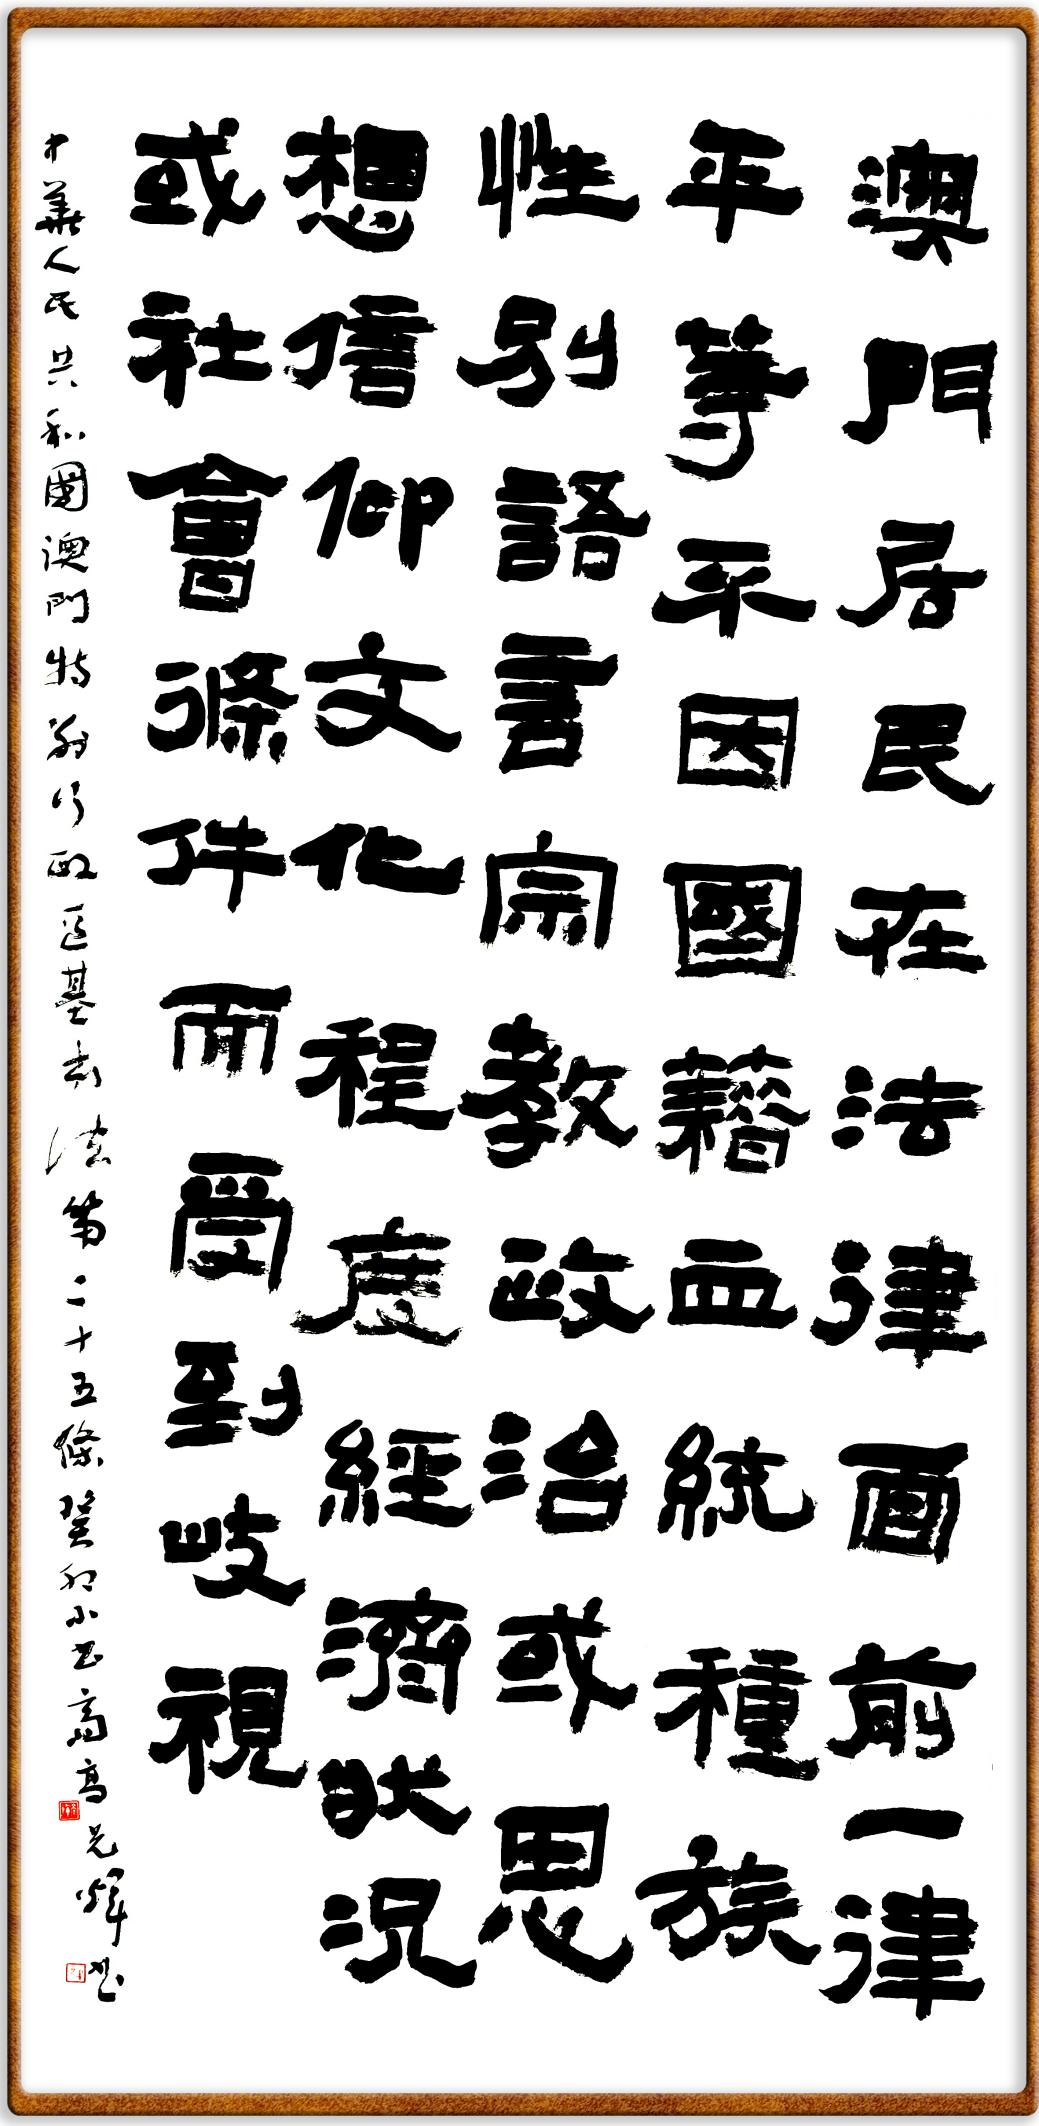 澳門居民在法律面前一律
平等不因國籍血統種族
性別語言宗教政治或思
想信仰文化程度經濟狀況
或社會條件而受到歧視
中華人民共和國澳門特別行政區基本法第二十五條癸卯小高光輝書